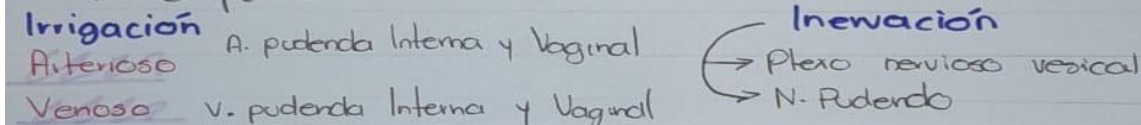 Irrigación
A. pudenda Interna y Vaginal
Arterioso
Venoso v. pudenda Interna y Vaginal
Inervación
→ Plexo nervioso vesical
→ N. Pudendo